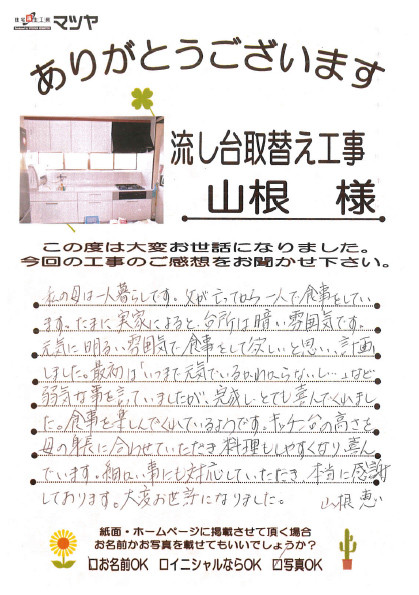 住宅再生工房 マツヤ
ありがとうございます
流し台取替え工事
山根 様
この度は大変お世話になりました。
今回の工事のご感想をお聞かせ下さい。
私の母は一人暮らしです。父が亡ってから一人で食事をしてい
ます。たまに実家によると、台所は暗い雰囲気です。
元気に明るい雰囲気で食事をして欲しいと思い、計画
しました。最初は「いつまで元気でいるかわからないし…」など
弱気な事を言っていましたが、完成しとても喜んでくれまし
た。食事を楽しんでくれているようです。キッチン台の高さを
母の身長に合わせていただき料理もしやすくなり喜ん
でいます。細かい事にも対応していただき、本当に感謝
しております。大変お世話になりました。 山根 恵
紙面・ホームページに掲載させて頂く場合
お名前かお写真を載せてもいいでしょうか?
□お名前OK □イニシャルならOK ☑写真OK